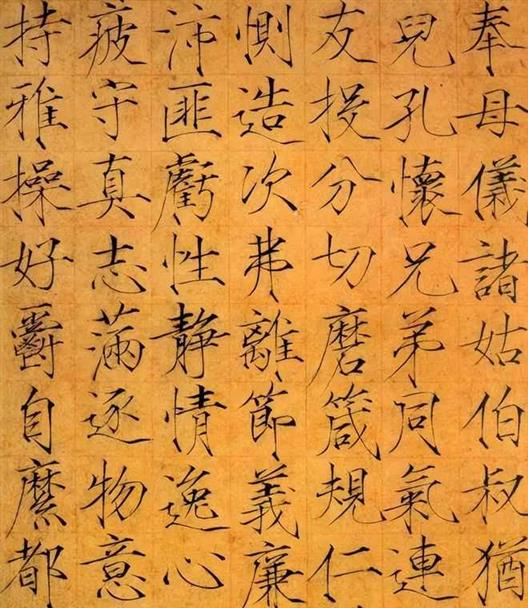 奉母儀諸姑伯叔猶
兒孔懷兄弟同氣連
友投分切磨箴規仁
惻造次弗離節義廉
沛匪虧性静情逸心
疲守真志滿逐物意
持雅操好爵自縻都